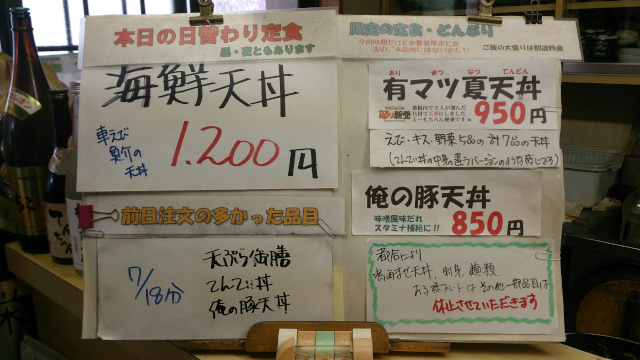 本日の日替わり定食
昼・夜ともあります
海鮮天丼
車えび
魚介の
天丼
1.200円
前日注文の多かった品目
7/18分
天ぷら御膳
てんでぃ丼
俺の豚天丼
限定の定食・どんぶり
今の時期だけとか数量限定とか
次のご来店時にはないかも?!
ご飯の大盛りは別途料金
有マツ夏天丼
あり まつ なつ てんどん
950円
えび・キス・野菜5品の計7品の天丼
(てんでぃ丼の中身の違うバージョンのような感じです)
俺の豚天丼
味噌風味だれ
スタミナ補給に!!
850円
都合により
お子様プレート
その他一部品目は
休止させていただきます